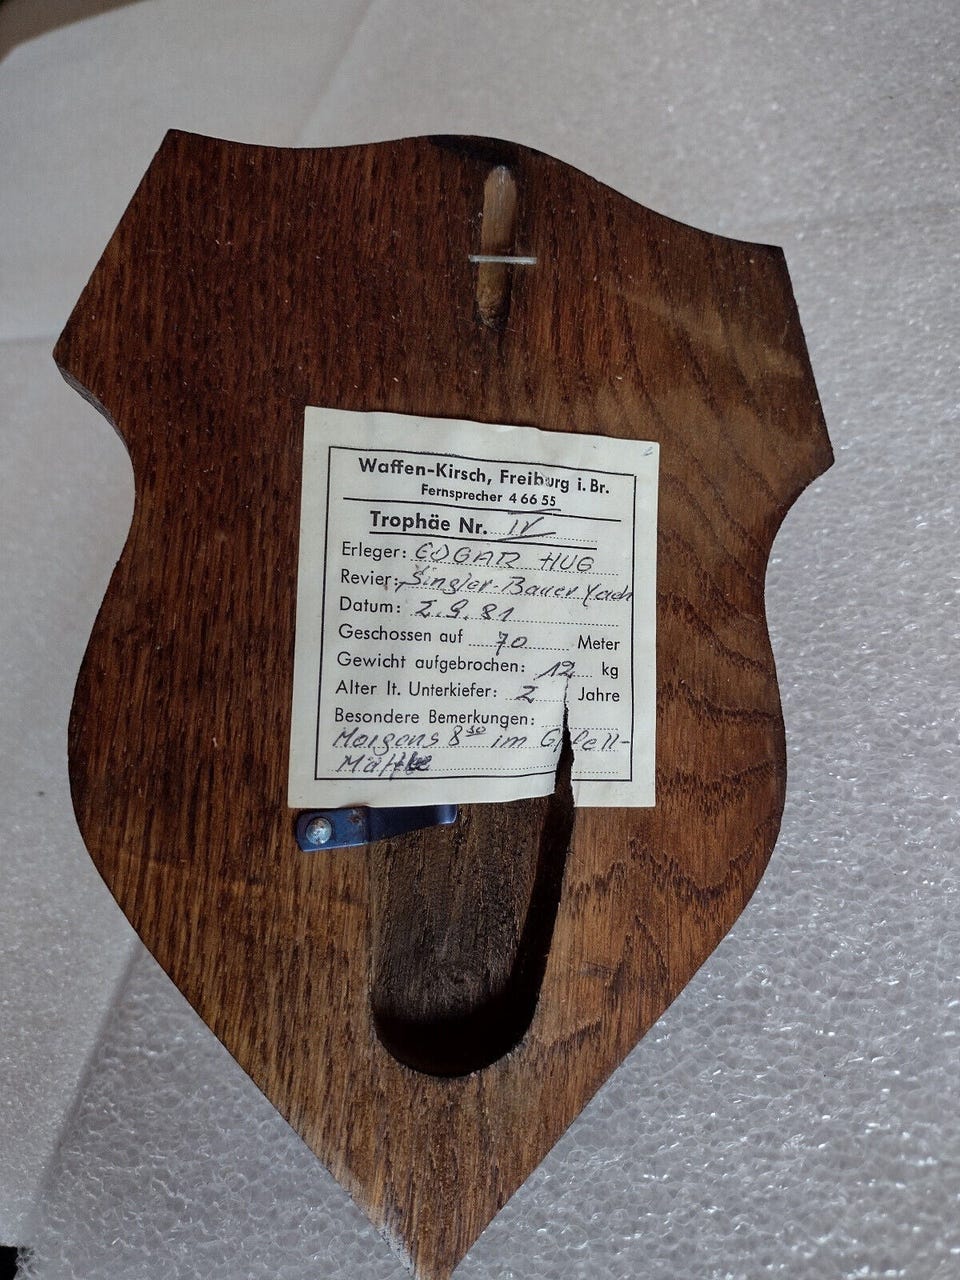 Waffen-Kirsch, Freiburg i. Br.
Fernsprecher 4 66 55
Trophäe Nr. IV
Erleger: EDGAR HUG
Revier: Singler-Bauer Yach
Datum: 2.9.81
Geschossen auf 70 Meter
Gewicht aufgebrochen: 12 kg
Alter lt. Unterkiefer: 2 Jahre
Besondere Bemerkungen:
Morgens 8³⁰ im